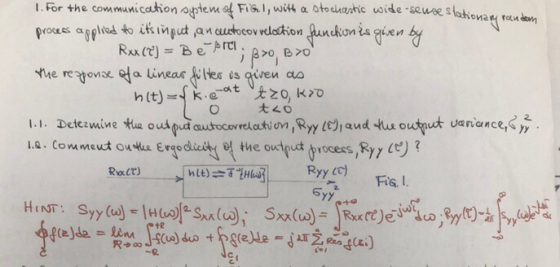 1. For the communication system of Fig.1, with a stochastic wide-sense stationary random
process applied to its input, an autocorrelation function is given by
Rxx(τ) = B e^{-β|τ|} ; β>0, B>0
the response of a linear filter is given as
h(t) = { K·e^{-αt} t≥0, K>0
0 t<0
1.1. Determine the output autocorrelation, Ryy(τ), and the output variance, σyy².
1.2. Comment on the Ergodicity of the output process, Ryy(τ)?
Rxx(τ) h(t) ⇌ {H(ω)} Ryy(τ)
σyy² Fig.1.
HINT: Syy(ω) = |H(ω)|² Sxx(ω); Sxx(ω) = ∫_{-∞}^{+∞} Rxx(τ) e^{-jωτ} dω, Ryy(τ) = 1/2π ∫_{-∞}^{∞} Syy(ω) e^{-jωτ} dω
∮_C f(z)dz = lim_{R→∞} ∫_{-R}^{+R} f(ω)dω + ∮_{C1} f(z)dz = j2π Σ_{i=1}^{n} Res f(zi)